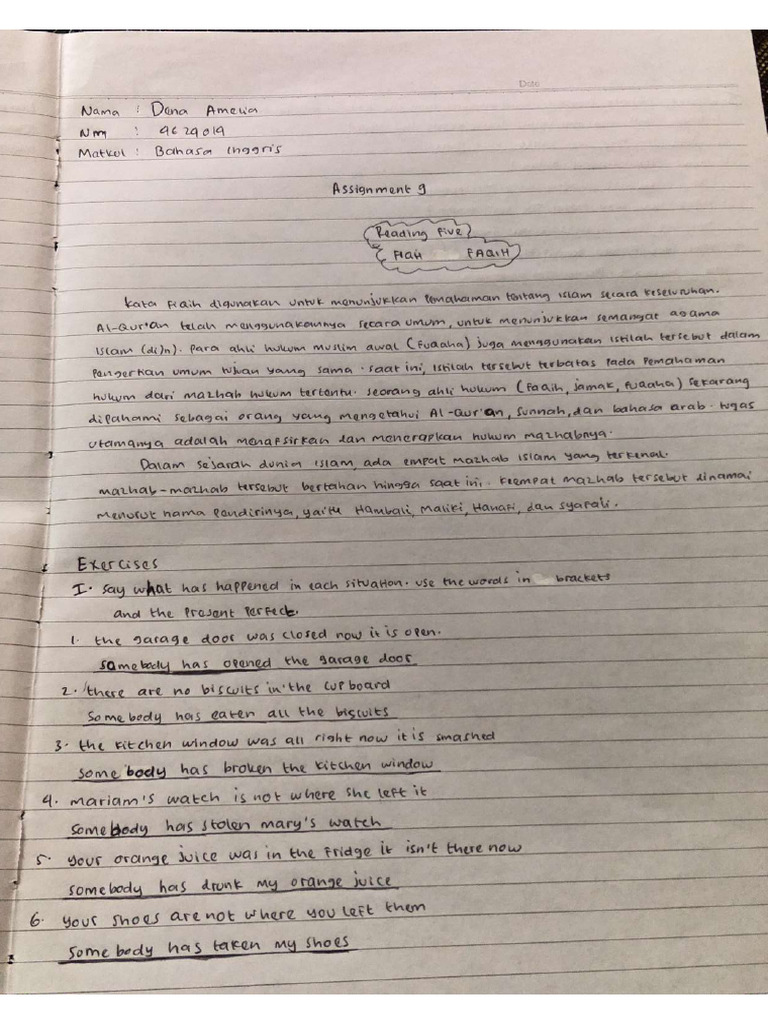 Date
Nama : Dena Amelia
Nim : 9629019
Matkul : Bahasa Inggris
Assignment 9
Reading five
FIQIH FAQIH
Kata Fiqih digunakan untuk menunjukkan pemahaman tentang Islam secara keseluruhan.
Al-Qur'an telah menggunakannya secara umum, untuk menunjukkan semangat agama
Islam (di)n). Para ahli hukum muslim awal (Fuqaha) juga menggunakan istilah tersebut dalam
pengertian umum tujuan yang sama. saat ini, istilah tersebut terbatas pada pemahaman
hukum dari mazhab hukum tertentu. seorang ahli hukum (faqih, jamak, fuqaha) sekarang
dipahami sebagai orang yang mengetahui Al-Qur'an, sunnah, dan bahasa arab. tugas
utamanya adalah menafsirkan dan menerapkan hukum mazhabnya.
Dalam sejarah dunia islam, ada empat mazhab islam yang terkenal.
mazhab-mazhab tersebut bertahan hingga saat ini. Keempat mazhab tersebut dinamai
menurut nama pendirinya, yaitu Hambali, Maliki, Hanafi, dan syafali.
Exercises
I. say what has happened in each situation. use the words in brackets
and the present perfect.
1. the garage door was closed now it is open.
somebody has opened the garage door
2. there are no biscuits in the cupboard
Somebody has eaten all the biscuits
3. the kitchen window was all right now it is smashed
some body has broken the kitchen window
4. mariam's watch is not where she left it
somebody has stolen mary's watch
5. your orange juice was in the fridge it isn't there now
somebody has drunk my orange juice
6. your shoes are not where you left them
some body has taken my shoes